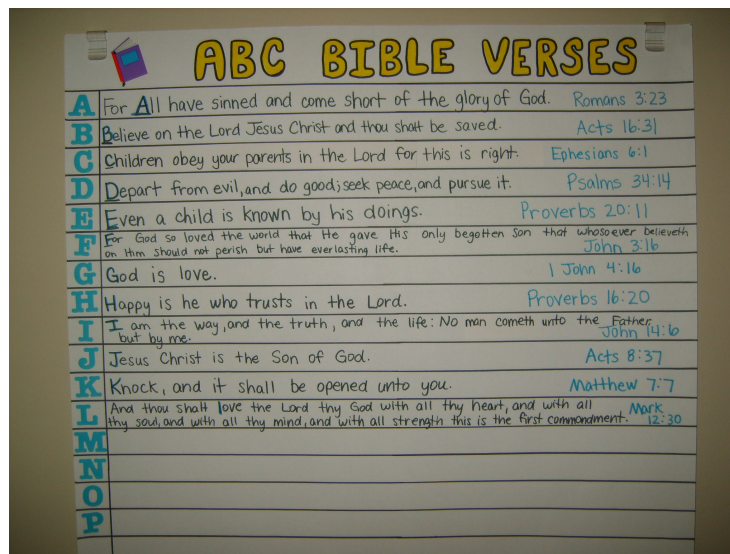 ABC BIBLE VERSES
A For All have sinned and come short of the glory of God. Romans 3:23
B Believe on the Lord Jesus Christ and thou shalt be saved. Acts 16:31
C Children obey your parents in the Lord for this is right. Ephesians 6:1
D Depart from evil, and do good; seek peace, and pursue it. Psalms 34:14
E Even a child is known by his doings. Proverbs 20:11
F For God so loved the world that He gave His only begotten Son that whosoever believeth
on Him should not perish but have everlasting life. John 3:16
G God is love. 1 John 4:16
H Happy is he who trusts in the Lord. Proverbs 16:20
I I am the way, and the truth, and the life: No man cometh unto the Father,
but by me. John 14:6
J Jesus Christ is the Son of God. Acts 8:37
K Knock, and it shall be opened unto you. Matthew 7:7
L And thou shalt love the Lord thy God with all thy heart, and with all Mark
thy soul, and with all thy mind, and with all strength this is the first commandment. 12:30
M
N
O
P